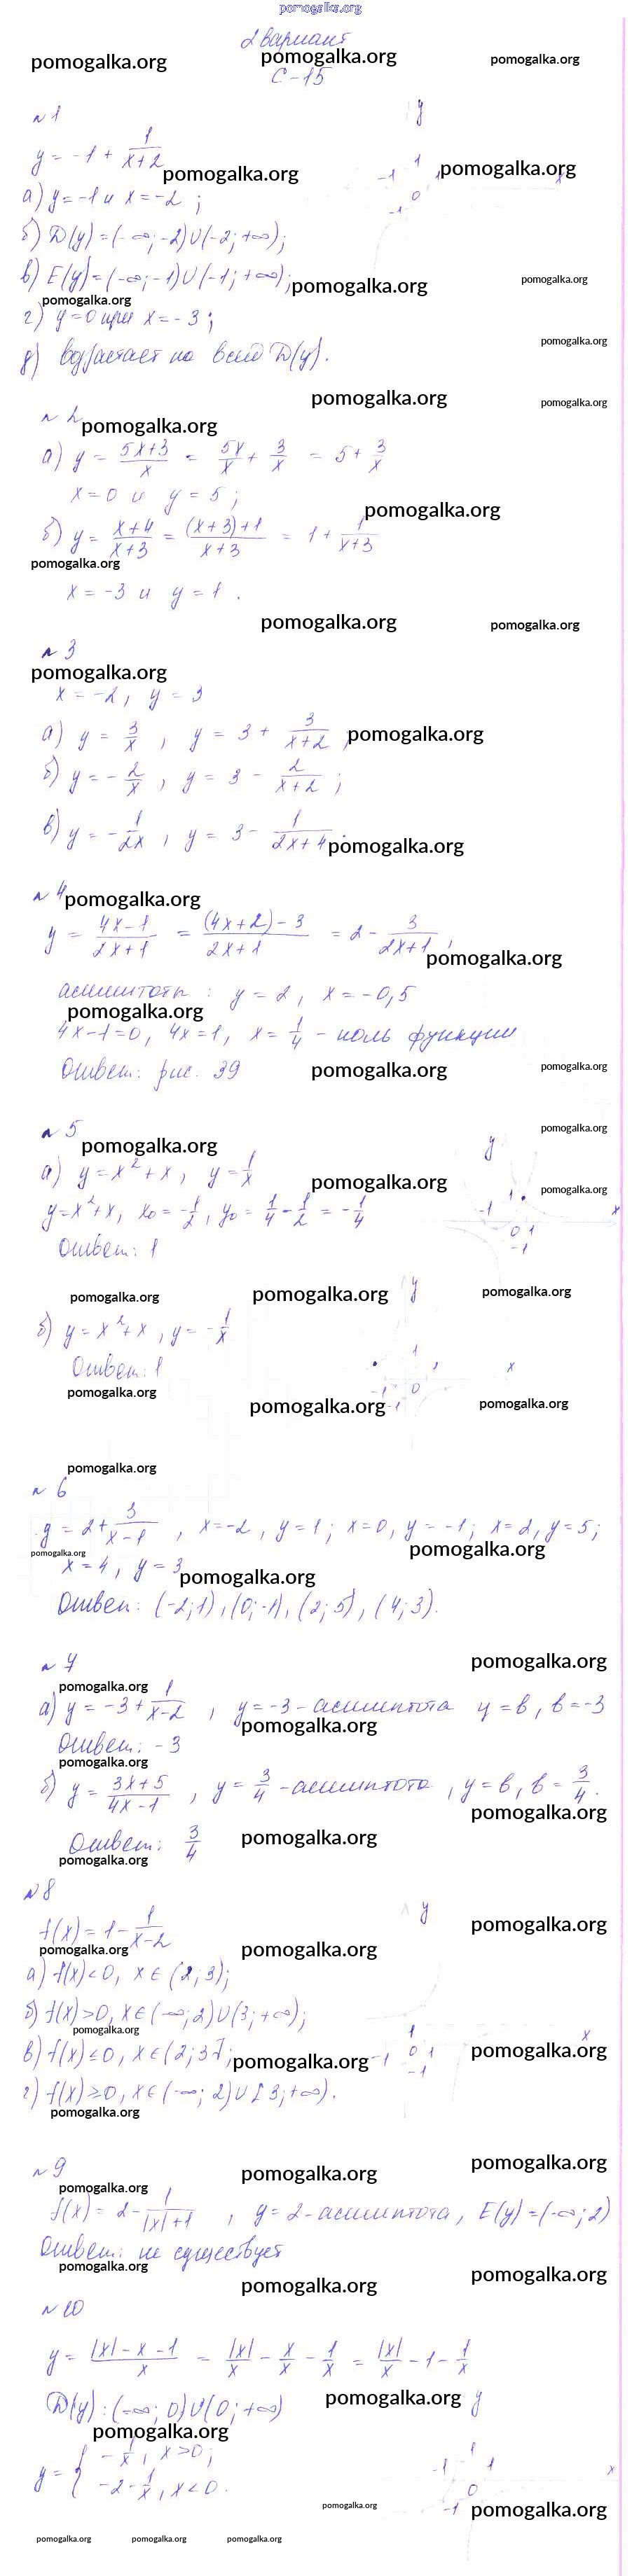 pomogalka.org
2 вариант
pomogalka.org pomogalka.org pomogalka.org
С-15
№1
y
y = -1 + 1/(x+2)
pomogalka.org pomogalka.org
-1 1 1 x
0
-1
а) y=-1 и x=-2;
б) D(y)=(-∞;-2)U(-2;+∞);
в) E(y)=(-∞;-1)U(-1;+∞);
pomogalka.org pomogalka.org
pomogalka.org
г) y=0 при x=-3;
pomogalka.org
д) возрастает на всей D(y).
pomogalka.org pomogalka.org
№2
pomogalka.org
а) y = (5x+3)/x = 5x/x + 3/x = 5 + 3/x
x=0 и y=5;
pomogalka.org
б) y = (x+4)/(x+3) = ((x+3)+1)/(x+3) = 1 + 1/(x+3)
pomogalka.org
x=-3 и y=1.
pomogalka.org pomogalka.org
№3
pomogalka.org
x=-2, y=3
а) y = 3/x, y = 3 + 3/(x+2);
pomogalka.org
б) y = -2/x, y = 3 - 2/(x+2);
в) y = -1/2x, y = 3 - 1/(2x+4).
pomogalka.org
№4
pomogalka.org
y = (4x-1)/(2x+1) = ((4x+2)-3)/(2x+1) = 2 - 3/(2x+1),
pomogalka.org
асимптоты: y=2, x=-0,5
pomogalka.org
4x-1=0, 4x=1, x=1/4 - ноль функции
Ответ: рис. 39
pomogalka.org pomogalka.org
№5
pomogalka.org
pomogalka.org
y
а) y=x²+x, y=1/x
pomogalka.org pomogalka.org
y=x²+x, x₀=-1/2, y₀=1/4-1/2=-1/4
-1 1 x
0 1
-1
Ответ: 1
pomogalka.org pomogalka.org pomogalka.org
y
б) y=x²+x, y=-1/x
Ответ: 1
1 1 x
-1 0
-1
pomogalka.org pomogalka.org pomogalka.org
pomogalka.org
№6
y = 2 + 3/(x-1), x=-2, y=1; x=0, y=-1; x=2, y=5;
pomogalka.org pomogalka.org
x=4, y=3
pomogalka.org
Ответ: (-2;1), (0;-1), (2;5), (4;3).
№7
pomogalka.org
pomogalka.org
а) y = -3 + 1/(x-2), y=-3 - асимптота y=b, b=-3
pomogalka.org
Ответ: -3
pomogalka.org
б) y = (3x+5)/(4x-1), y=3/4 - асимптота, y=b, b=3/4.
pomogalka.org
Ответ: 3/4
pomogalka.org
pomogalka.org
№8
y
f(x) = 1 - 1/(x-2)
pomogalka.org
pomogalka.org pomogalka.org
а) f(x)<0, x∈(2;3);
б) f(x)>0, x∈(-∞;2)U(3;+∞);
pomogalka.org
1 x
в) f(x)≤0, x∈(2;3];
pomogalka.org -1 0 1 pomogalka.org
-1
г) f(x)≥0, x∈(-∞;2)U[3;+∞).
pomogalka.org
№9
pomogalka.org pomogalka.org
pomogalka.org
f(x) = 2 - 1/(|x|+1), y=2 - асимптота, E(y)=(-∞;2)
Ответ: не существует
pomogalka.org pomogalka.org
pomogalka.org
№10
y = (|x|-x-1)/x = |x|/x - x/x - 1/x = |x|/x - 1 - 1/x
D(y): (-∞;0)U(0;+∞)
pomogalka.org y
pomogalka.org
y = { -1/x, x>0;
-2-1/x, x<0.
1
-1 1 x
0
-1
pomogalka.org pomogalka.org
pomogalka.org pomogalka.org pomogalka.org